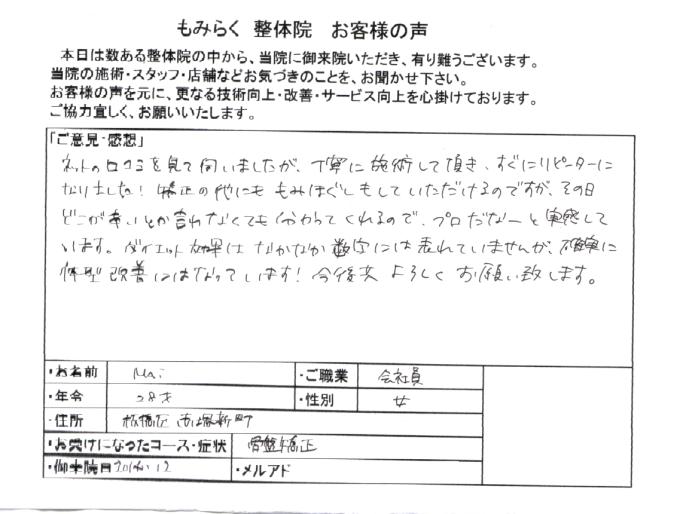 もみらく 整体院 お客様の声
本日は数ある整体院の中から、当院に御来院いただき、有り難うございます。
当院の施術・スタッフ・店舗などお気づきのことを、お聞かせ下さい。
お客様の声を元に、更なる技術向上・改善・サービス向上を心掛けております。
ご協力宜しく、お願いいたします。
「ご意見・感想」
ネットの口コミを見て伺いましたが、丁寧に施術して頂き、すぐにリピーターに
なりました！ 矯正の他にも もみほぐしもしていただけるのですが、その日
どこが辛いとか言わなくても分かってくれるので、プロだなーと実感して
います。ダイエット効果は なかなか数字には表れていませんが、確実に
体型改善にはなっています！ 今後共 よろしく お願い致します。
・お名前 Mai ・ご職業 会社員
・年令 28才 ・性別 女
・住所 板橋区
・お受けになったコース・症状 骨盤矯正
・御来院日 ・メルアド